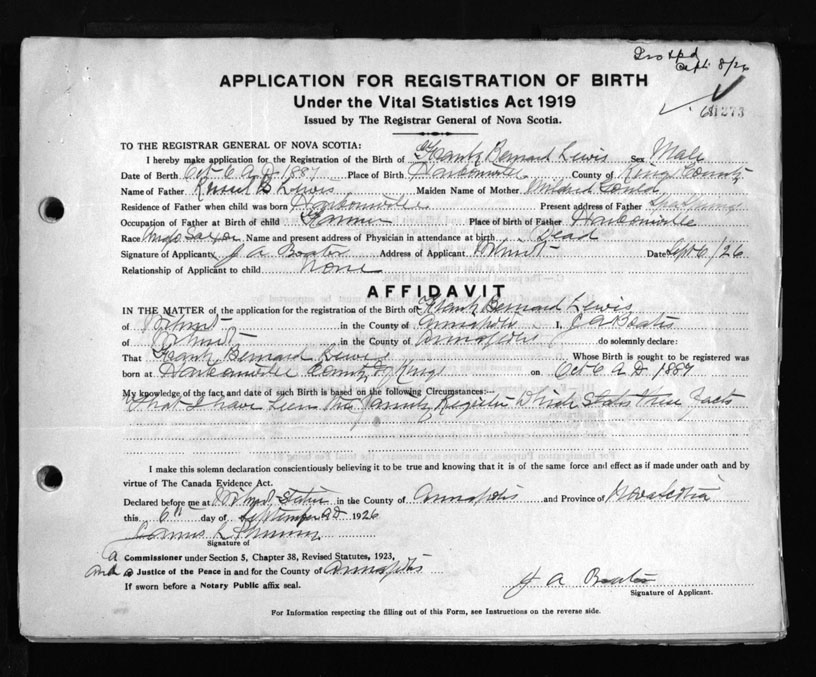 Sept 8/26
APPLICATION FOR REGISTRATION OF BIRTH
Under the Vital Statistics Act 1919
Issued by The Registrar General of Nova Scotia.
61273
TO THE REGISTRAR GENERAL OF NOVA SCOTIA:
I hereby make application for the Registration of the Birth of Frank Bernard Lewis Sex Male
Date of Birth Oct 6 A D 1887 Place of Birth Harbourville County of Kings County
Name of Father B Lewis Maiden Name of Mother Gould
Residence of Father when child was born Harbourville Present address of Father
Occupation of Father at Birth of child Farmer Place of birth of Father Harbourville
Race Anglo Saxon Name and present address of Physician in attendance at birth Dead
Signature of Applicant J A Address of Applicant Date Sept 6/26
Relationship of Applicant to child None
AFFIDAVIT
IN THE MATTER of the application for the registration of the Birth of Frank Bernard Lewis
of in the County of Annapolis I, J A
of in the County of Annapolis do solemnly declare:
That Frank Bernard Lewis Whose Birth is sought to be registered was
born at Harbourville County of Kings on Oct 6 A D 1887
My knowledge of the fact and date of such Birth is based on the following Circumstances:-
That I have seen the family Register which States these facts
I make this solemn declaration conscientiously believing it to be true and knowing that it is of the same force and effect as if made under oath and by
virtue of The Canada Evidence Act.
Declared before me at in the County of Annapolis and Province of Nova Scotia
this 6th day of September A D 1926
Signature of
a Commissioner under Section 5, Chapter 38, Revised Statutes, 1923,
and a Justice of the Peace in and for the County of Annapolis
If sworn before a Notary Public affix seal.
J A
Signature of Applicant.
For Information respecting the filling out of this Form, see Instructions on the reverse side.